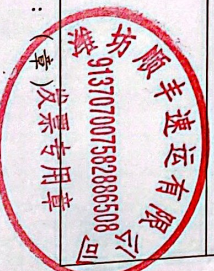 潍坊顺丰速运有限公司
913707007582886508
发票专用章
：（章）